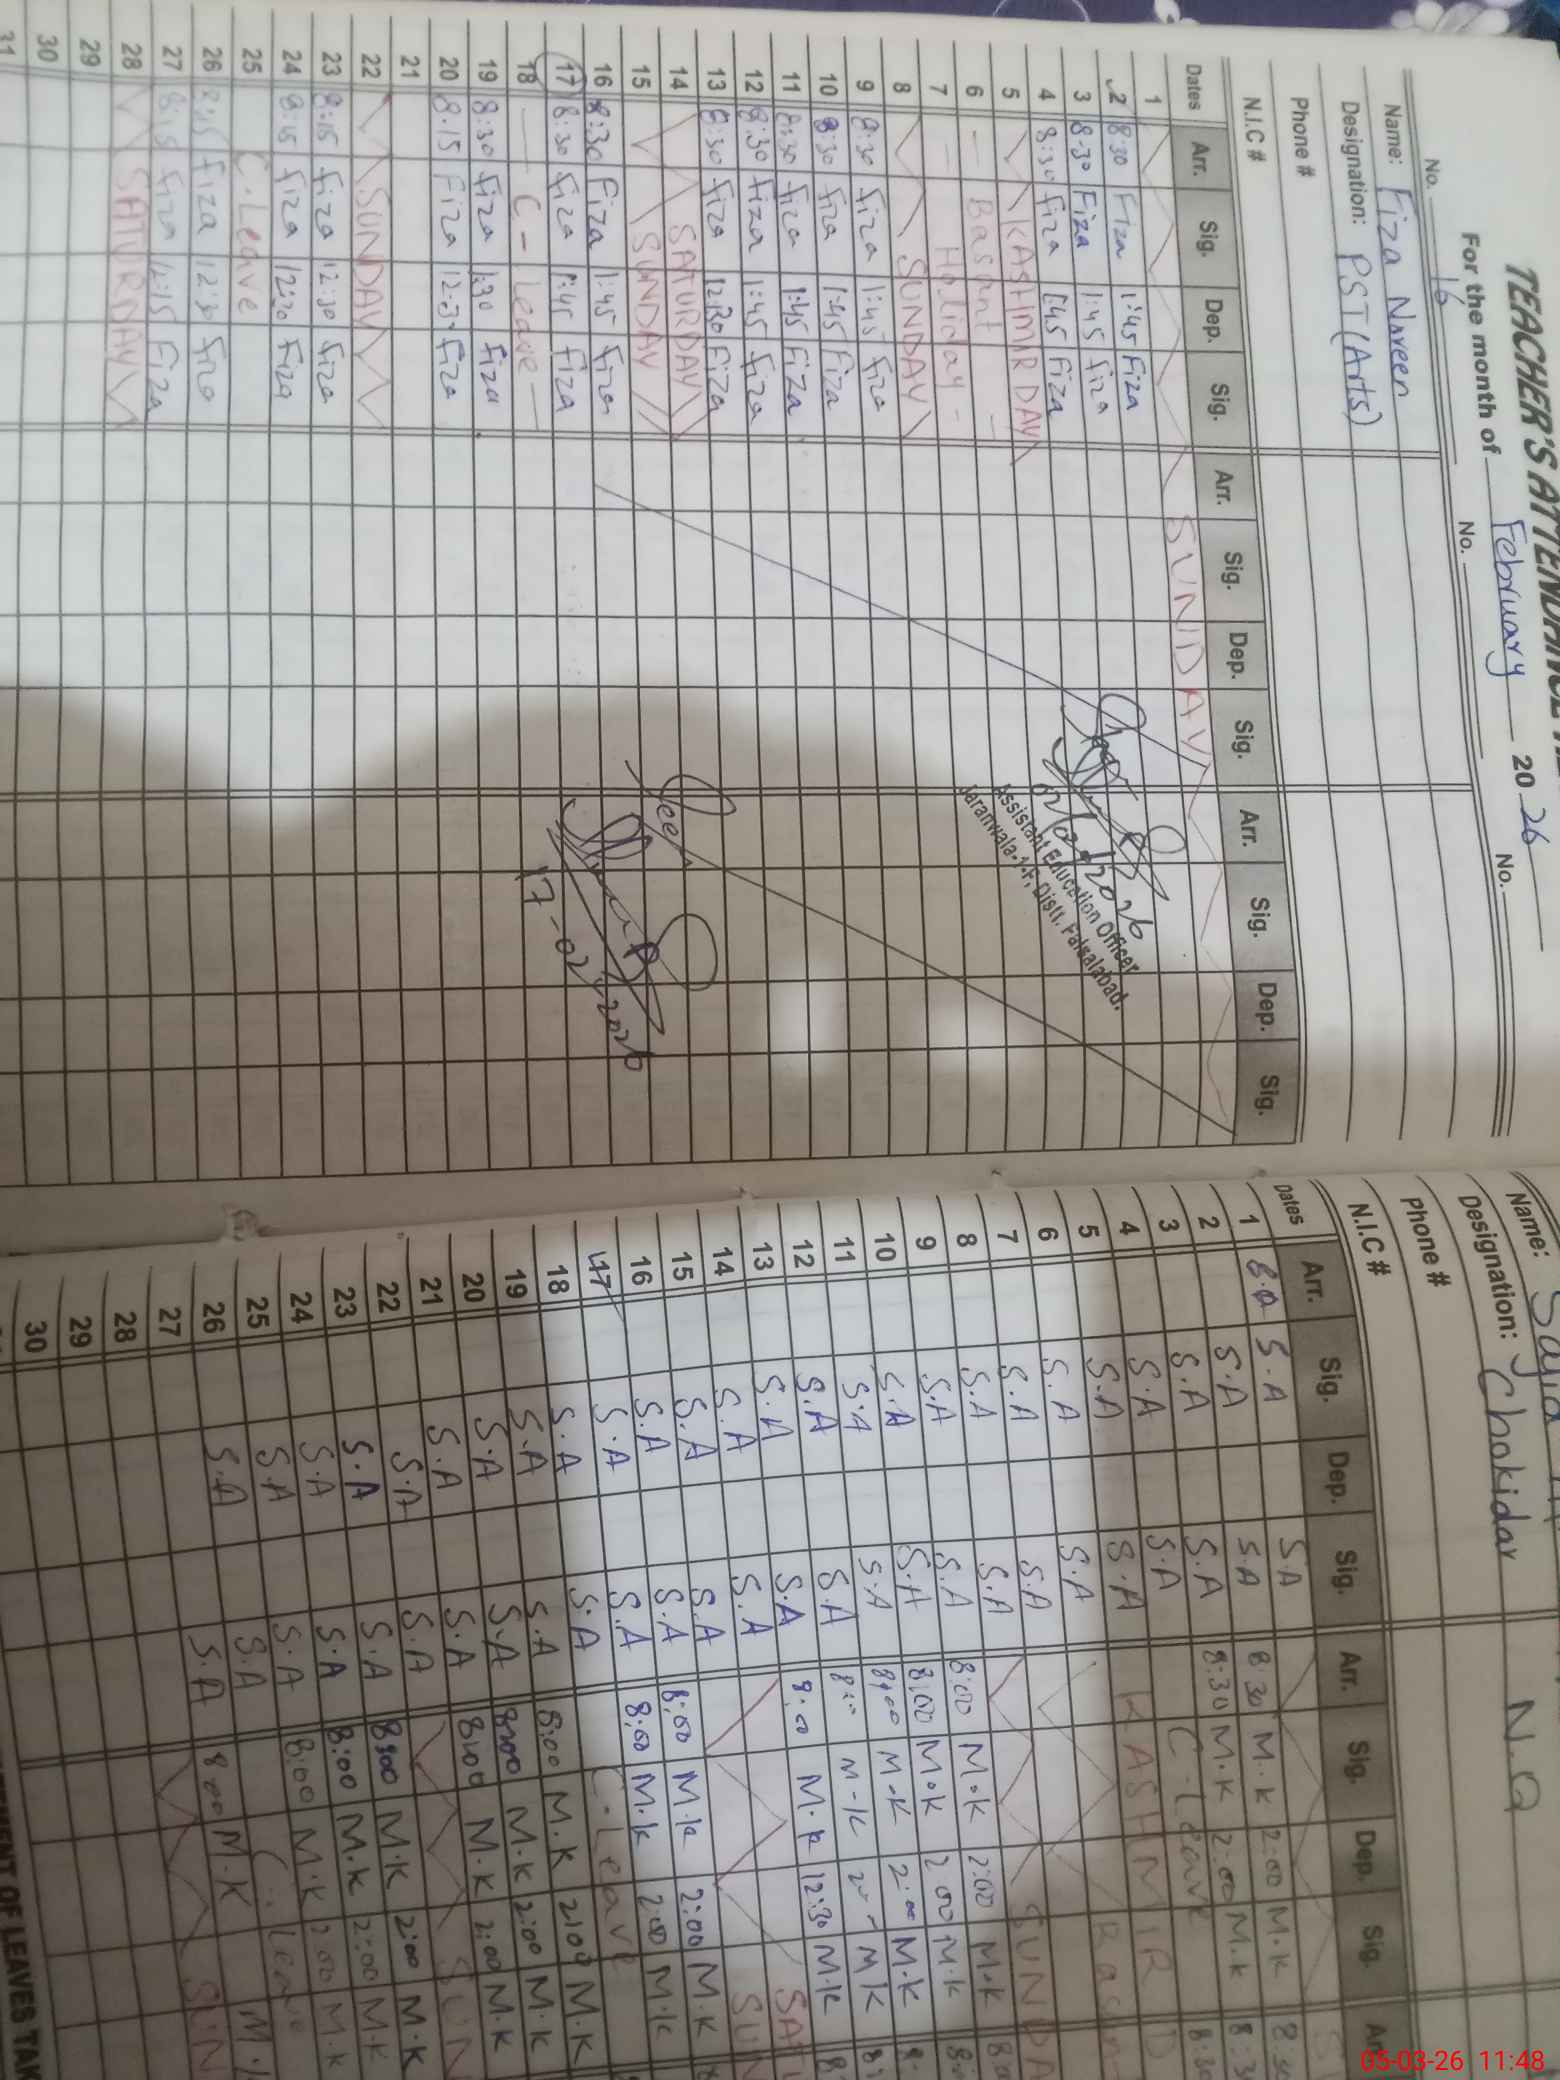 TEACHER'S ATTENDANCE
For the month of February 20 26
No. 16 No. No.
Name: Fiza Noreen
Designation: PST (Arts)
Phone #
N.I.C #
Dates Arr. Sig. Dep. Sig. Arr. Sig. Dep. Sig. Arr. Sig. Dep. Sig.
1 SUNDAY
2 8:30 Fiza 1:45 Fiza
3 8:30 Fiza 1:45 Fiza
4 8:30 Fiza 1:45 Fiza
5 KASHMIR DAY
6 Basant
7 Holiday
8 SUNDAY
9 8:30 Fiza 1:45 Fiza
10 8:30 Fiza 1:45 Fiza
11 8:30 Fiza 1:45 Fiza
12 8:30 Fiza 1:45 Fiza
13 8:30 Fiza 12:30 Fiza
14 SATURDAY
15 SUNDAY
16 8:30 Fiza 1:45 Fiza
17 8:30 Fiza 1:45 Fiza
18 C - Leave
19 8:30 Fiza 1:30 Fiza
20 8:15 Fiza 12:30 Fiza
21
22 SUNDAY
23 8:15 Fiza 12:30 Fiza
24 8:15 Fiza 12:30 Fiza
25 C. Leave
26 8:15 Fiza 12:30 Fiza
27 8:15 Fiza 12:15 Fiza
28 SATURDAY
29
30
31
Assistant Education Officer
Jaranwala-1-F, Distt. Faisalabad.
17-02-2026
Name:
Designation: Chokidar N.Q
Phone #
N.I.C #
Dates Arr. Sig. Dep. Sig. Arr. Sig. Dep. Sig.
1 S.A S.A
2 S.A S.A 8:30 M.K 2:00 M.K
3 S.A S.A 8:30 M.K 2:00 M.K
4 S.A S.A C-Leave
5 S.A S.A KASHMIR
6 S.A S.A Basant
7 S.A S.A
8 S.A S.A SUNDA
9 S.A S.A 8:00 M.K 2:00 M.K
10 S.A S.A 8:00 M.K 2:00 M.K
11 S.A S.A 8:00 M.K 2:00 M.K
12 S.A S.A M.K M.K
13 S.A S.A 8:00 M.K 12:30 M.K
14 S.A S.A SAT
15 S.A S.A SUN
16 S.A S.A 8:00 M.K 2:00 M.K
17 S.A S.A 8:00 M.K 2:00 M.K
18 S.A S.A C. Leave
19 S.A S.A 8:00 M.K 2:00 M.K
20 S.A S.A 8:00 M.K 2:00 M.K
21 S.A S.A 8:00 M.K 2:00 M.K
22 S.A S.A SUN
23 S.A S.A 8:00 M.K 2:00 M.K
24 S.A S.A 8:00 M.K 2:00 M.K
25 S.A S.A 8:00 M.K 2:00 M.K
26 S.A S.A C. Leave
27 8:00 M.K
28 SUN
29
30
OF LEAVES TAK
05-03-26 11:48